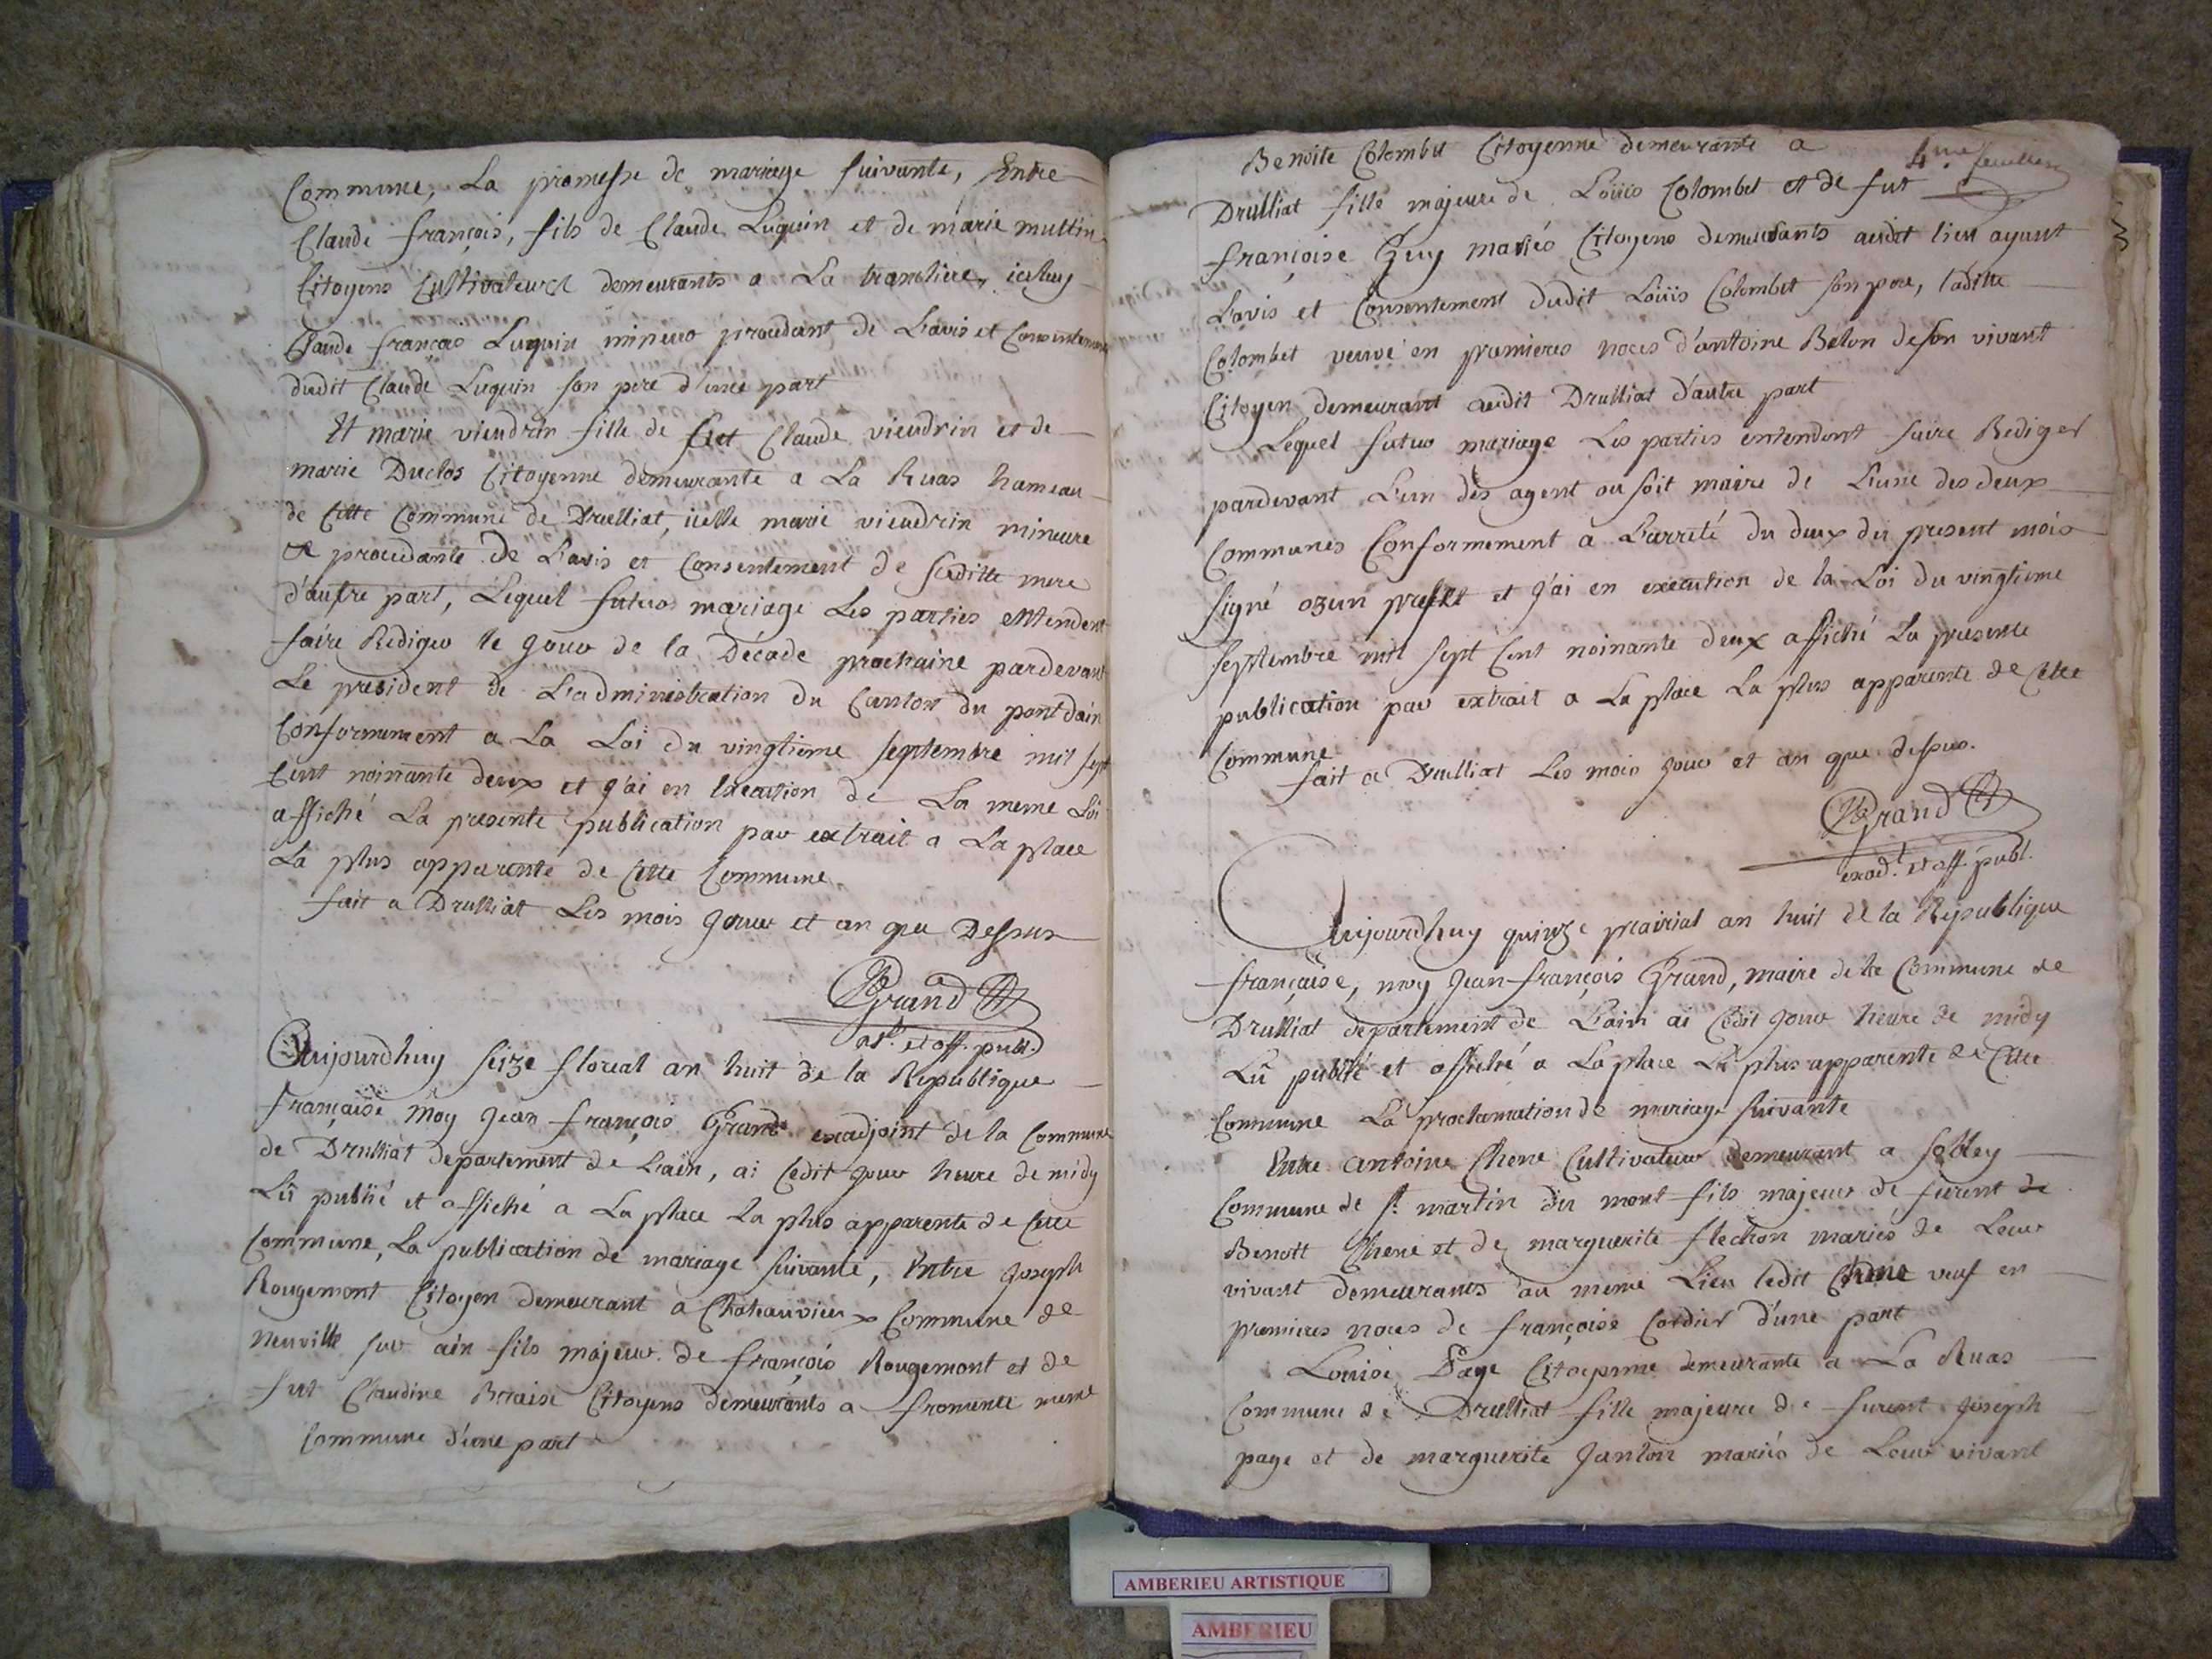 Commune, La promesse de mariage suivante, Entre
Claude françois, fils de Claude Luquin et de marie muttin
Citoyens Cultivateurs demeurants a La tranclière, iceluy
Claude françois Luquin mineur procedant de L'avis et Consentement
dudit Claude Luquin son pere d'une part
Et marie vieudrin fille de feu Claude vieudrin et de
marie Duclos Citoyenne demeurante a La Ruas hameau
de Cette Commune de Drulliat, icelle marie vieudrin mineure
et procedante de L'avis et Consentement de saditte mere
d'autre part, Lequel futur mariage Les parties entendent
faire Rediger le jour de la Décade prochaine pardevant
Le president de L'administration du Canton du pontdain
Conformement a La Loi du vingtieme septembre mil sept
Cent noinante deux et j'ai en Execution de La meme Loi
affiché La presente publication par extrait a La place
La plus apparente de Cette Commune
fait a Drulliat Les mois jour et an que Dessus
Grand
adt. et off. publ.
Aujourdhuy seize floreal an huit de la Republique
française Moy Jean françois Grand exadjoint de la Commune
de Drulliat departement de L'ain, ai Cedit jour heure de midy
Lû publié et affiché a La place la plus apparente de Cette
Commune, La publication de mariage suivante, Entre joseph
Rougemont Citoyen demeurant a Chateauvieux Commune de
neuville sur ain fils majeur de françois Rougemont et de
fut Claudine Braise Citoyens demeurants a fromente meme
Commune d'une part
4me feuillet
Benoite Colombet Citoyenne demeurante a
Drulliat fille majeure de Loüis Colombet et de fut
françoise Guy mariés Citoyens demeurants audit lieu ayant
L'avis et Consentement dudit Loüis Colombet son pere, laditte
Colombet veuve en premieres noces d'antoine Belon de son vivant
Citoyen demeurant audit Drulliat d'autre part
Lequel futur mariage Les parties entendent faire Rediger
pardevant L'un des agent ou soit maire de L'une des deux
Communes Conformement a L'arrêté du deux du present mois
signé ozun prefet et j'ai en execution de la Loi du vingtieme
septembre mil sept Cent noinante deux affiché La presente
publication par extrait a La place La plus apparente de Cette
Commune
fait a Drulliat Les mois jour et an que dessus.
Grand
exadt. et off. publ.
Aujourdhuy quinze prairial an huit de la Republique
française, moy Jean-françois Grand, maire de la Commune de
Drulliat departement de L'ain ai Cedit jour heure de midy
Lû publié et affiché a La place La plus apparente de Cette
Commune La proclamation de mariage suivante
Entre antoine Chene Cultivateur demeurant a solley
Commune de st. martin du mont fils majeur de furent de
Benoit Chene et de marguerite flechon mariés de Leur
vivant demeurants au meme Lieu ledit Chene veuf en
premieres noces de françoise Cordier d'une part
Louise Page Citoyenne demeurante a La Ruas
Commune de Drulliat fille majeure de furent joseph
page et de marguerite janton mariés de Leur vivant
AMBERIEU ARTISTIQUE
AMBERIEU